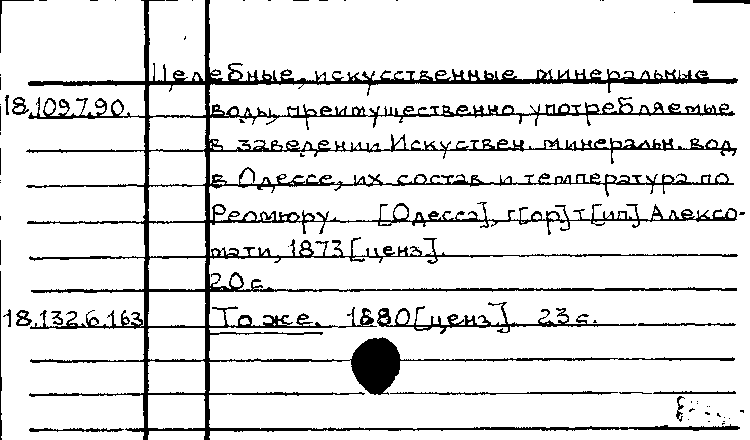 Целебные, искусственные минеральные
18.109.7.90. воды, преимущественно, употребляемые
в заведении Искуствен. минеральн. вод
в Одессе, их состав и температура по
Реомюру. [Одесса], г[ор] т[ип] Алексо-
мати, 1873 [ценз].
20 с.
18.132.6.163 То же. 1880 [ценз]. 23 с.